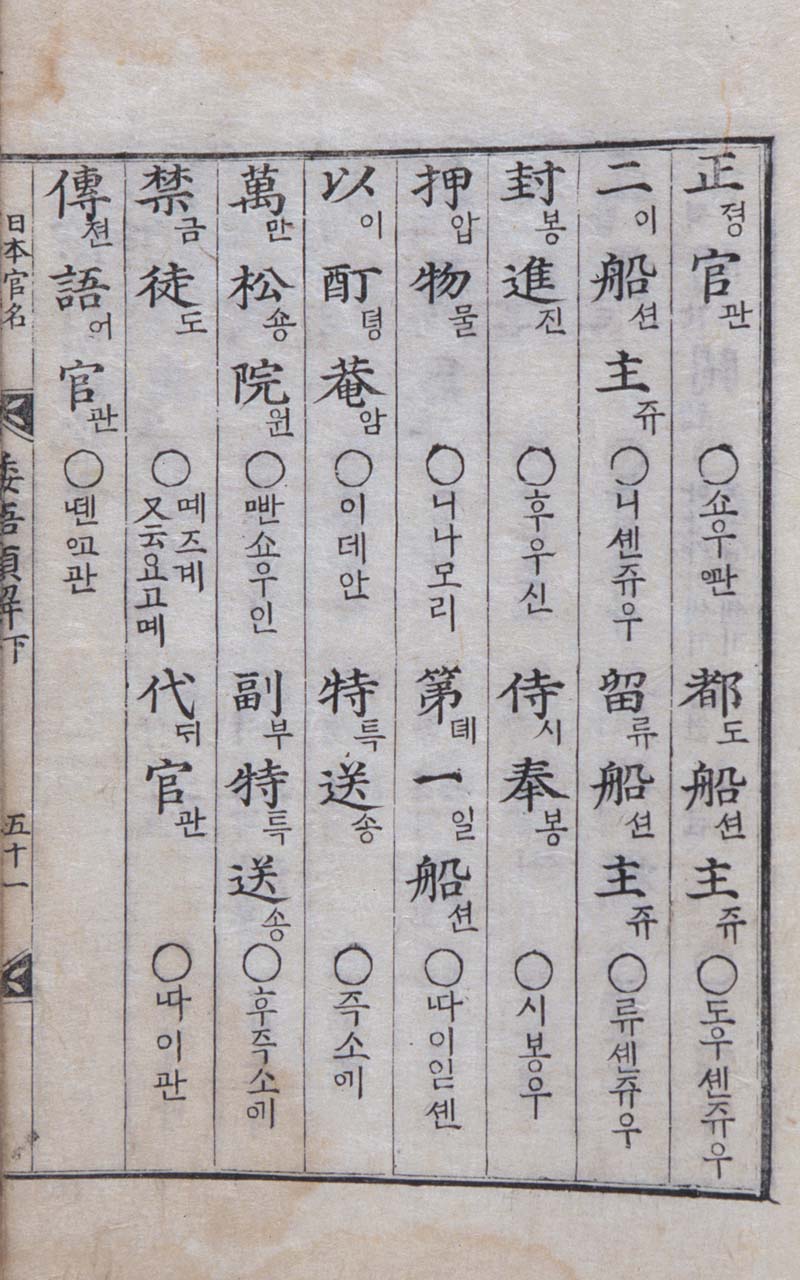 正졍官관○쇼우ᅄᅪᆫ 都도船션主쥬○도우셴쥬우
二이船션主쥬○니셴쥬우 留류船션主쥬○류셴쥬우
封봉進진○후우신 侍시奉봉○시봉우
押압物물○니나모리 第뎨一일船션○ᄯᅡ이읻셴
以이酊뎡菴암○이데안 特특送송○즉소ᅋᅦ
萬만松숑院원○ᄤᅡᆫ쇼우인 副부特특送송○후즉소ᅋᅦ
禁금徒도○몌즈계又云요고몌 代ᄃᆡ官관○ᄯᅡ이관
傳젼語어官관○ᄯᅦᆫᅌᅭ관
日本官名
倭語類解下
五十一